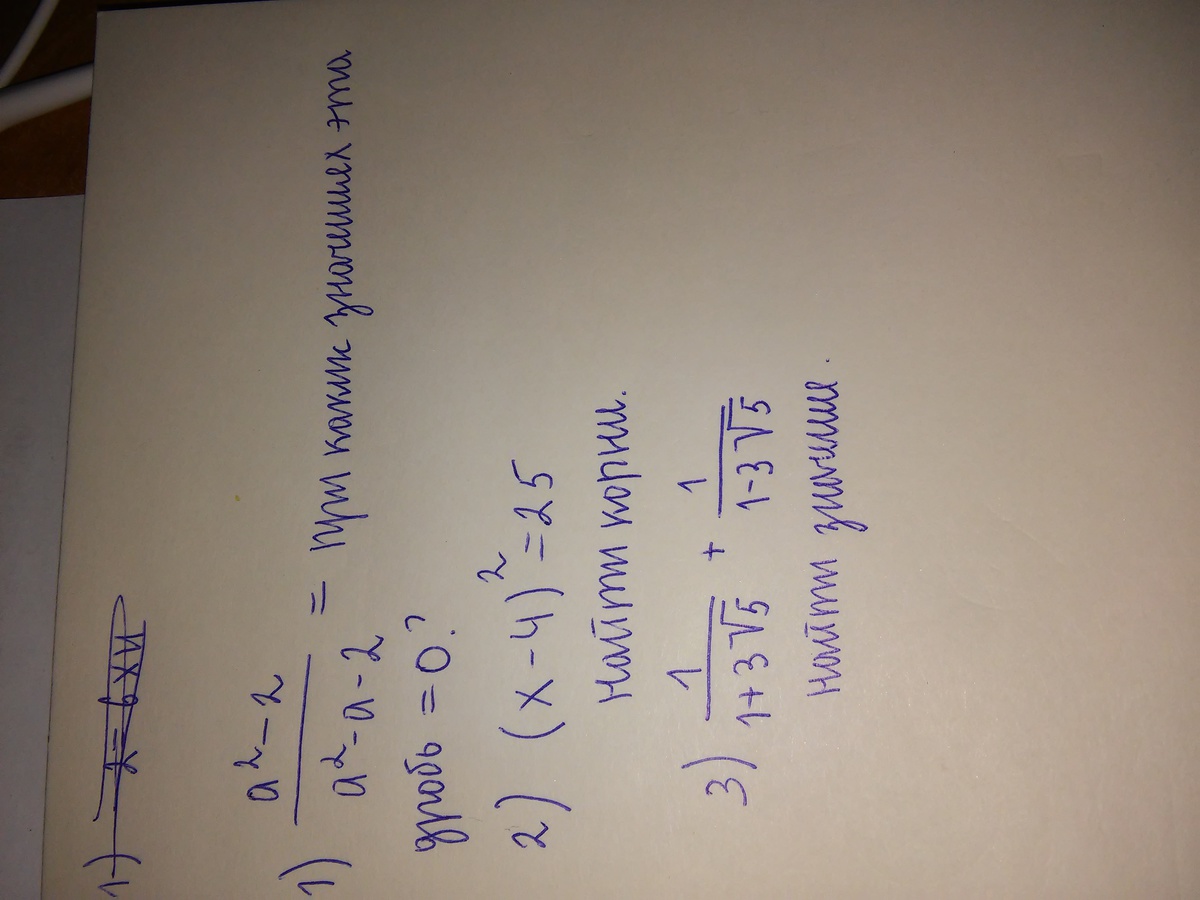 1)
1) a²-2 / a²-a-2 = При каких значениях эта
дробь = 0?
2) (x-4)² = 25
Найти корни.
3) 1 / 1+3√5 + 1 / 1-3√5
Найти значение.